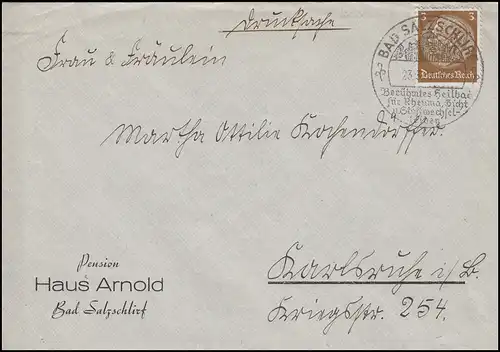 Drucksache
Frau & Fräulein
Martha Ottilie Kochendörffer.
Karlsruhe i/B.
Kriegsstr. 254.
3 3
Deutsches Reich
BAD SALZSCHLIRF
23.
Berühmtes Heilbad
für Rheuma, Gicht
u. Stoffwechsel-
leiden
Pension
Haus Arnold
Bad Salzschlirf